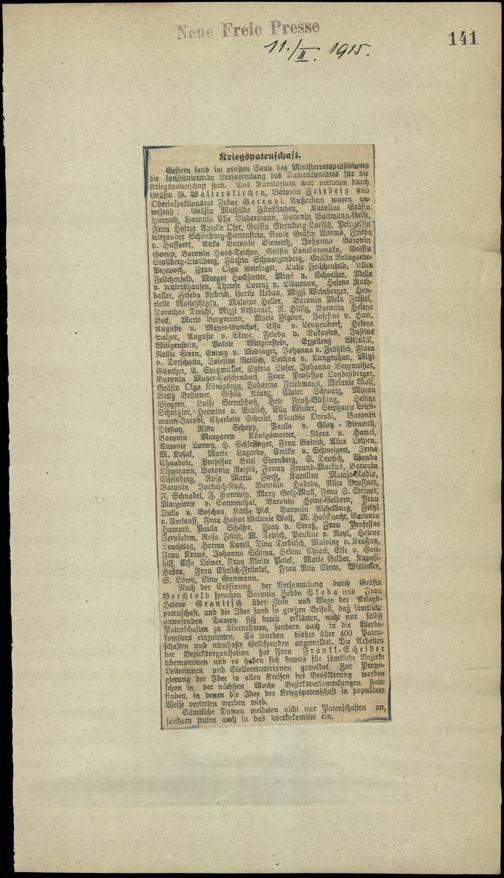 Neue Freie Presse
11./II. 1915.
141
Kriegspatenschaft.
Gestern fand im großen Saale des Ministerratspräsidiums
die konstituierende Versammlung des Damenkomitees für die
Kriegspatenschaft statt. Das Kuratorium war vertreten durch
Gräfin G. Walterskirchen, Baronin Friebeis und
Oberinspektionsrat Fedor Gerenyi. Außerdem waren an-
wesend: Gräfin Mathilde Fünfkirchen, Karoline Gräfin
Harrach, Baronin Else Biedermann, Baronin Gutmann-Gelse,
Frau Hofrat Amelie Oser, Gräfin Sternberg-Larisch, Prinzessin
Alexander Schönburg-Hartenstein, Renée Gräfin Attems, Frieda
v. Hussarek, Anka Baronin Bienerth, Johanna Baronin
Gorup, Baronin Haas-Teichen, Gräfin Lanckoronska, Gräfin
Stollberg-Stollberg, Fürstin Schwarzenberg, Gräfin Bellegarde-
Frau Olga Geiringer, Luise Feilchenfeld,
Feilchenfeld, Margot Hochstetter, Mimi v. Schoeller, Melie
v. Therese Lorenz v. Liburnau, Helene Roth-
baller, Frieda Redrich, Gertie Urban, Mizzi Weinberger, Hen-
riette Malvine Heller, Baronin Mela Ferstel,
Dorothea Treichl, Mizzi Kestranek, R. Hillig, Baronin Helene
Beck, Marie Bergmann, Marie Figdor, Josefine v. Hart,
Auguste v. Mayer-Gunthof, Elsa v. Leutzendorf, Helene
Auguste v. Skene, Frieda v. Vukovics, Justine
Wittgenstein, Exzellenz
Nellie Stern, Emmy v. Medinger, Johanna v. Fröhlich, Flora
v. Derschatta, Josefine Redlich, Bettina v. Langenhan, Mitzi
Günther, A. Spitzmüller, Sylvia Lieser, Johanna Bergmeister,
Baronin Mayer-Ketschendorf, Frau Professor Landesberger,
Gräfin Olga Königsegg, Johanna Friedmann, Melanie Wolf,
Betty Brünner, Gisela Kranz, Claire Schwarz, Minna
Luise Sternischtie, Hete Helene
Schnitzler, Hermine v. Redlich, Ella Winter, Stephanie Wied-
mann-Jacobi, Charlotte Schmitt, Klaudia Orendi, Baronin
Dirsztay, Rita Schopp, Paula v. Glotz-Bienerth,
Baronin Margarete Königswarter, Klara v. Hartel,
Antonie Loewy, H. Schlesinger, Frau Bairich, Alice Leipen,
M. Kosak, Marie Lugardo, Emilie v. Schweigert, Irma
Chaudoir, Professor Betti Sternberg, S. Deutsch, Wanda
Lippmann, Baronin Reizes, Fanny Freund-Markus, Baronin
Eiselsberg, Rosa Maria Forst, Karoline Mataja-Radio,
Baronin Jorkasch-Koch, Baronin Haerdtl, Alice Bruckner,
F. Schnabel, F. Horowitz, Mary Golz-Mall, Frau S. Steiner,
Margarete v. Sonnenthal, Baronin Heine-Geldern, Frau
Julia v. Boschan, Käthe Pick, Baronin Aichelburg, Fritzi
v. Umlauff, Frau Hofrat Melanie Wolf, M. Holzknecht, Baronin
Hamerd, Paula Schäfer, Frau v. Stroß, Frau Professor
Jerusalem, Rosa Fürst, M. Teirich, Pauline v. Reyl, Helene
Leuchtag, Herma Karell, Tina Trebitsch, Malvine v. Kraßny,
Frau Kraus, Johanna Schima, Helene Chiari, Else v. Gott-
hilf, Elsa Leiner, Frau Klaire Patek, Marie Gelber, Kaposi-
Hebra, Frau Ehrlich-Fränkel, Frau Rita Stern, Wislocker,
S. Löwy, Lina Guttmann.
Nach der Eröffnung der Versammlung durch Gräfin
Berchtold sprachen Baronin Hedda Skoda und Frau
Helene Granitsch über Ziele und Wege der Kriegs-
patenschaft, und die Idee fand so großen Beifall, daß sämtliche
anwesenden Damen sich bereit erklärten, nicht nur selbst
Patenschaften zu übernehmen, sondern auch in die Werbe-
komitees einzutreten. Es wurden bisher über 400 Paten-
schaften und namhafte Geldspenden angemeldet. Die Arbeiten
der Bezirksorganisation hat Frau Frankl-Scheiber
übernommen und es haben sich bereits für sämtliche Bezirke
Leiterinnen und Stellvertreterinnen gemeldet. Zur Propa-
gierung der Idee in allen Kreisen der Bevölkerung werden
schon in der nächsten Woche Bezirksversammlungen statt-
finden, in denen die Idee der Kriegspatenschaft in populärer
Weise vertreten werden wird.
Sämtliche Damen meldeten nicht nur Patenschaften an,
sondern traten auch in das Werbekomitee ein.